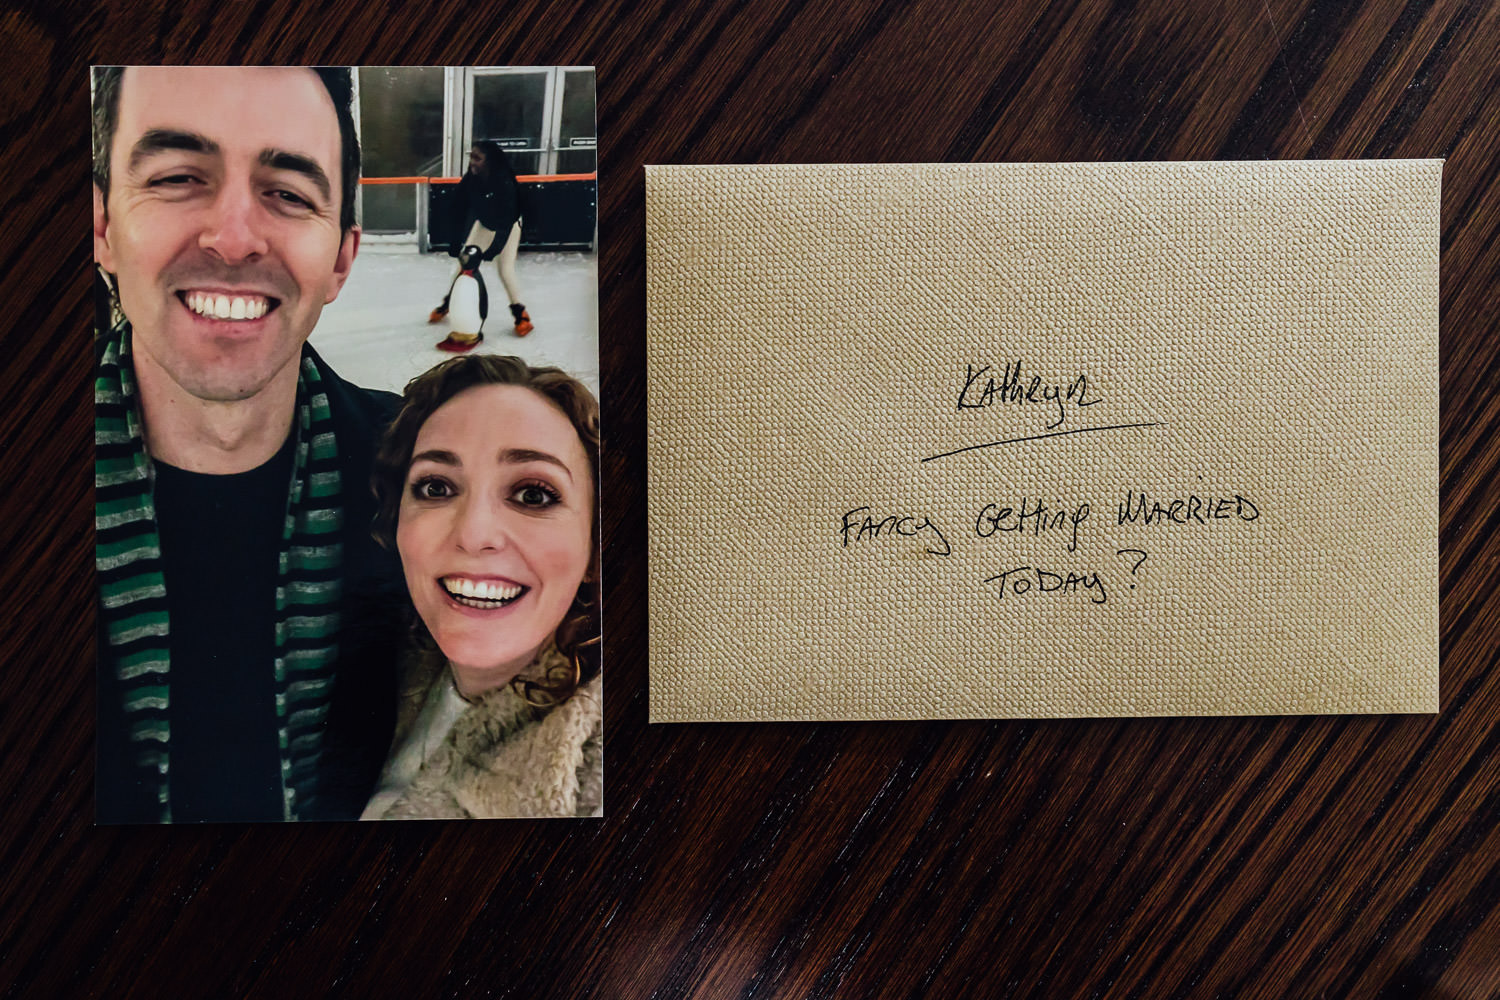 Kathryn
Fancy Getting MARRIED
TODAY?